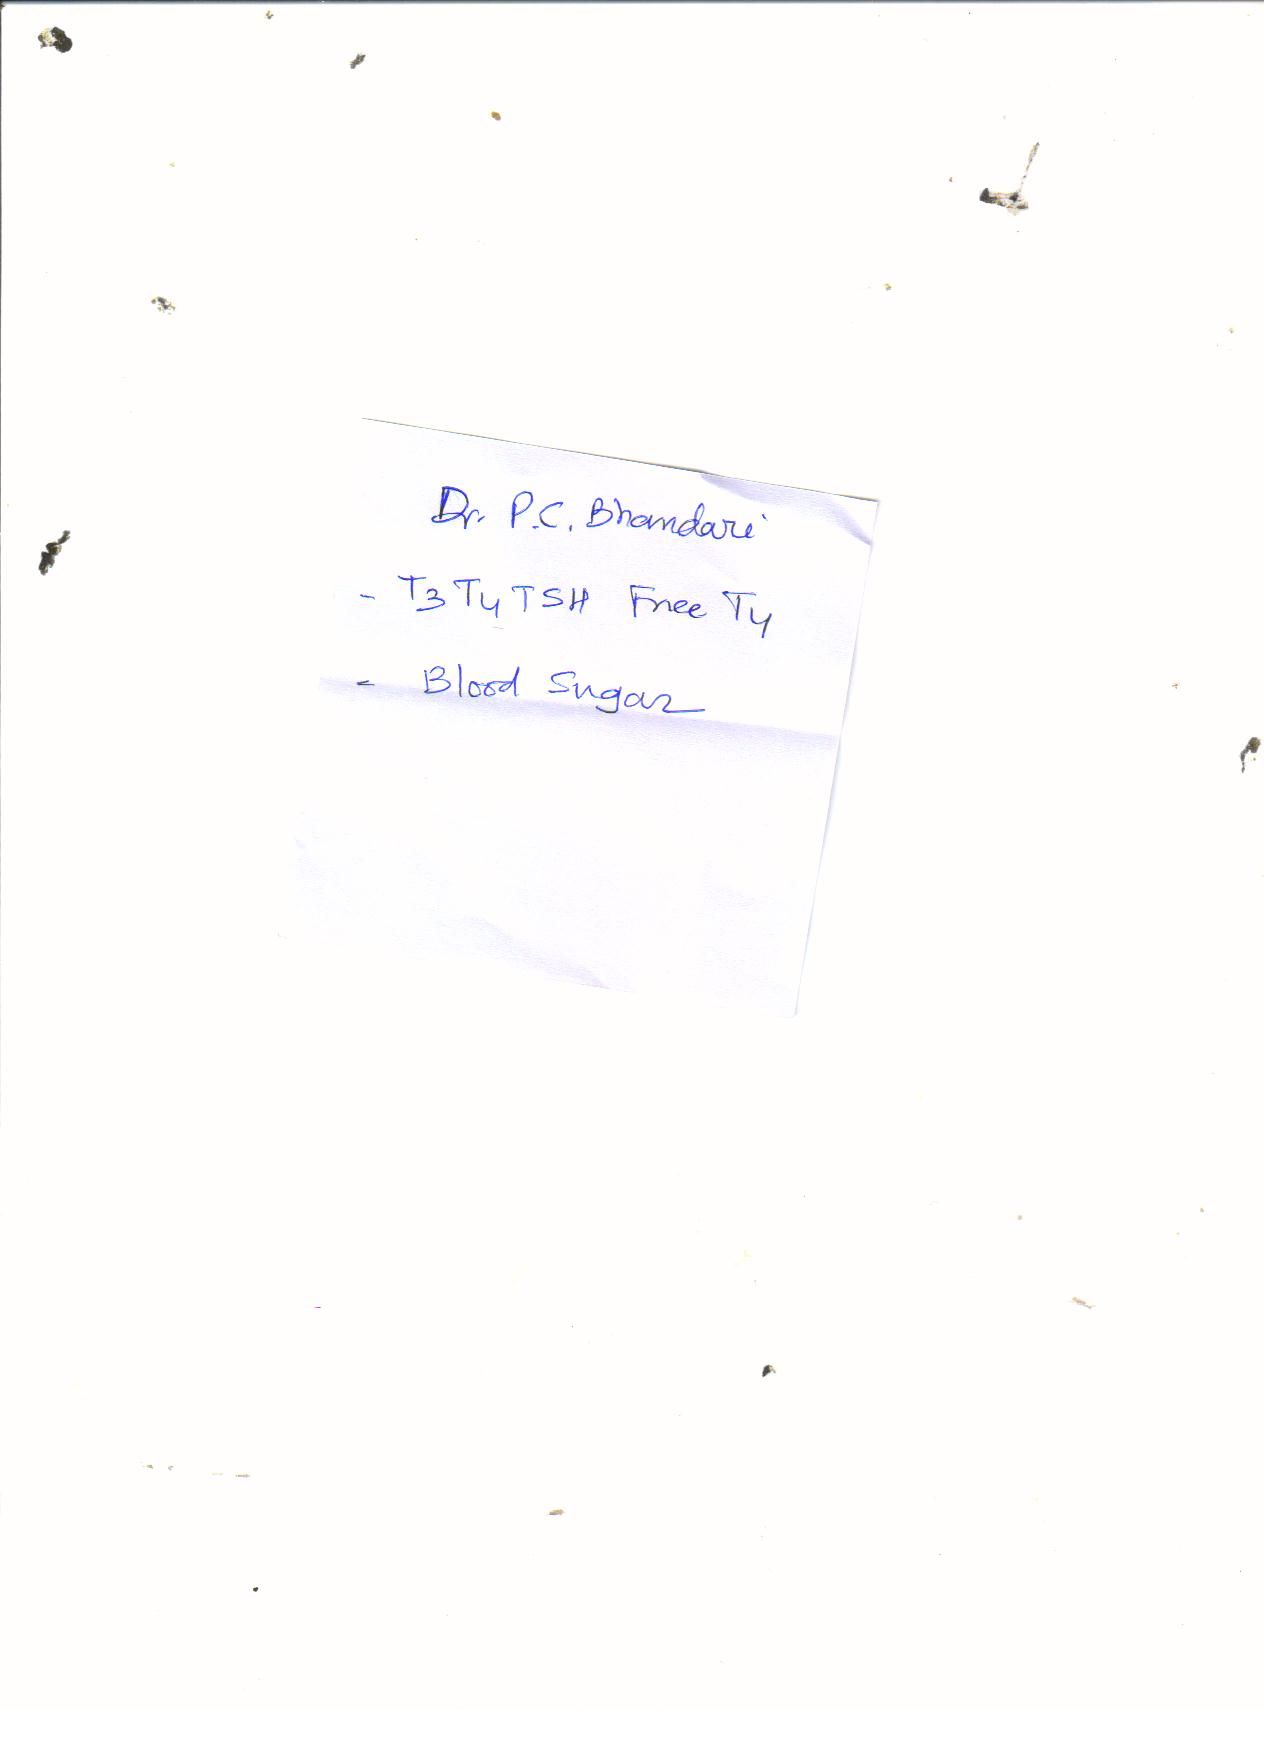 Dr. P.C. Bhandari
- T3 T4 TSH Free T4
- Blood Sugar